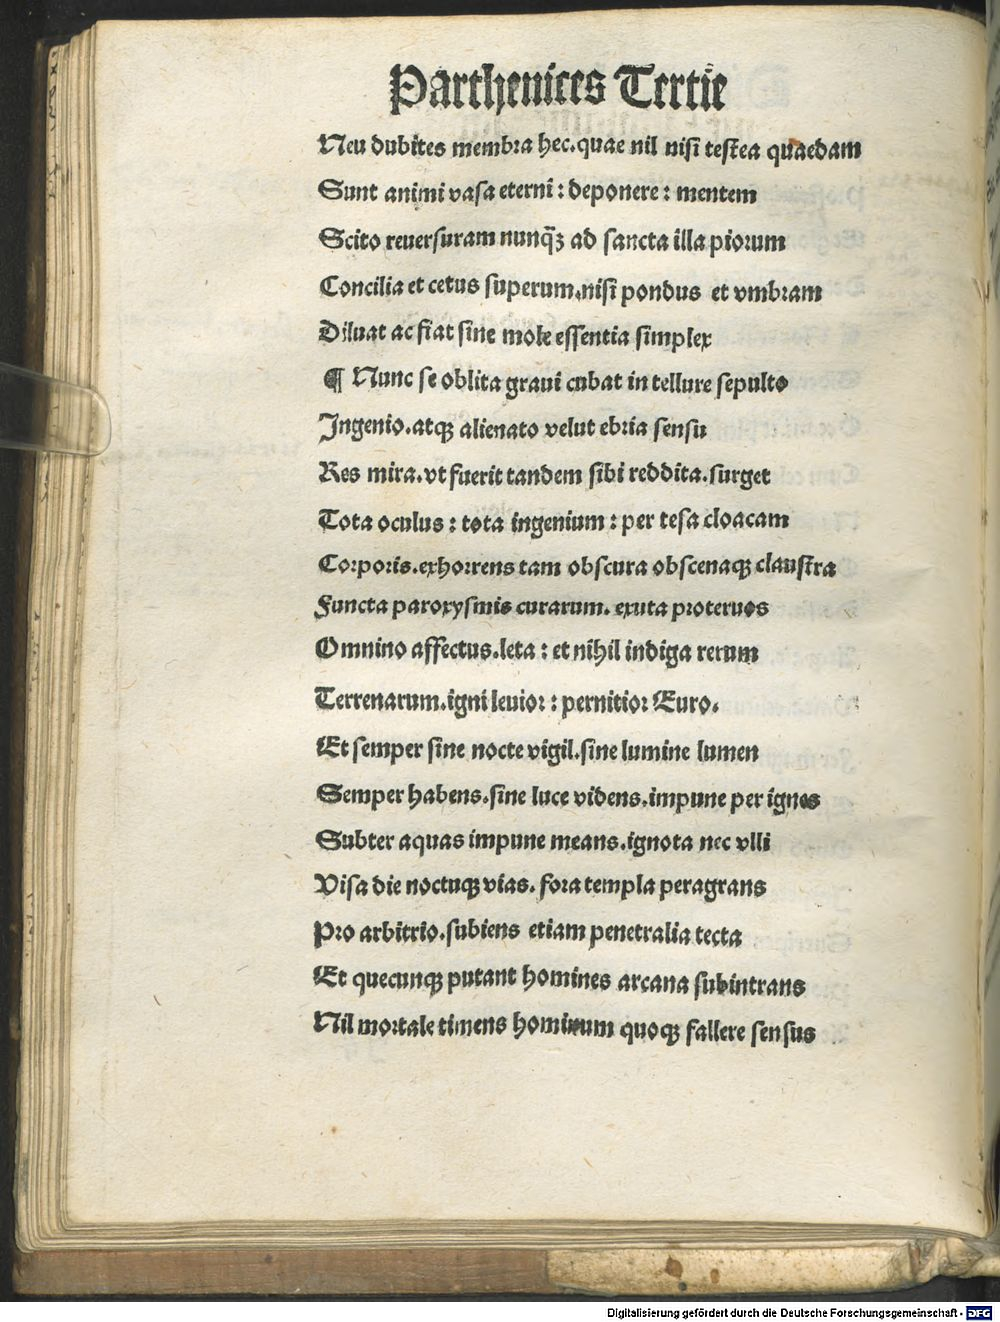 Parthenices Tertie
Neu dubites membra hec.quae nil nisi testea quaedam
Sunt animi vasa eterni : deponere : mentem
Scito reuersuram nunqꝫ ad sancta illa piorum
Concilia et cetus superum.nisi pondus et vmbram
Diluat ac fiat sine mole essentia simplex
¶ Nunc se oblita graui cubat in tellure sepulto
Ingenio.atqꝫ alienato velut ebria sensu
Res mira.vt fuerit tandem sibi reddita.surget
Tota oculus : tota ingenium : per tesa cloacam
Corporis.exhorrens tam obscura obscenaqꝫ claustra
Functa paroxysmis curarum. exuta proteruos
Omnino affectus.leta : et nihil indiga rerum
Terrenarum.igni leuior : pernitior Euro.
Et semper sine nocte vigil.sine lumine lumen
Semper habens.sine luce videns.impune per ignes
Subter aquas impune means.ignota nec vlli
Visa die noctuqꝫ vias. fora templa peragrans
Pro arbitrio.subiens etiam penetralia tecta
Et quecunqꝫ putant homines arcana subintrans
Nil mortale timens hominum quoqꝫ fallere sensus
Digitalisierung gefördert durch die Deutsche Forschungsgemeinschaft - DFG